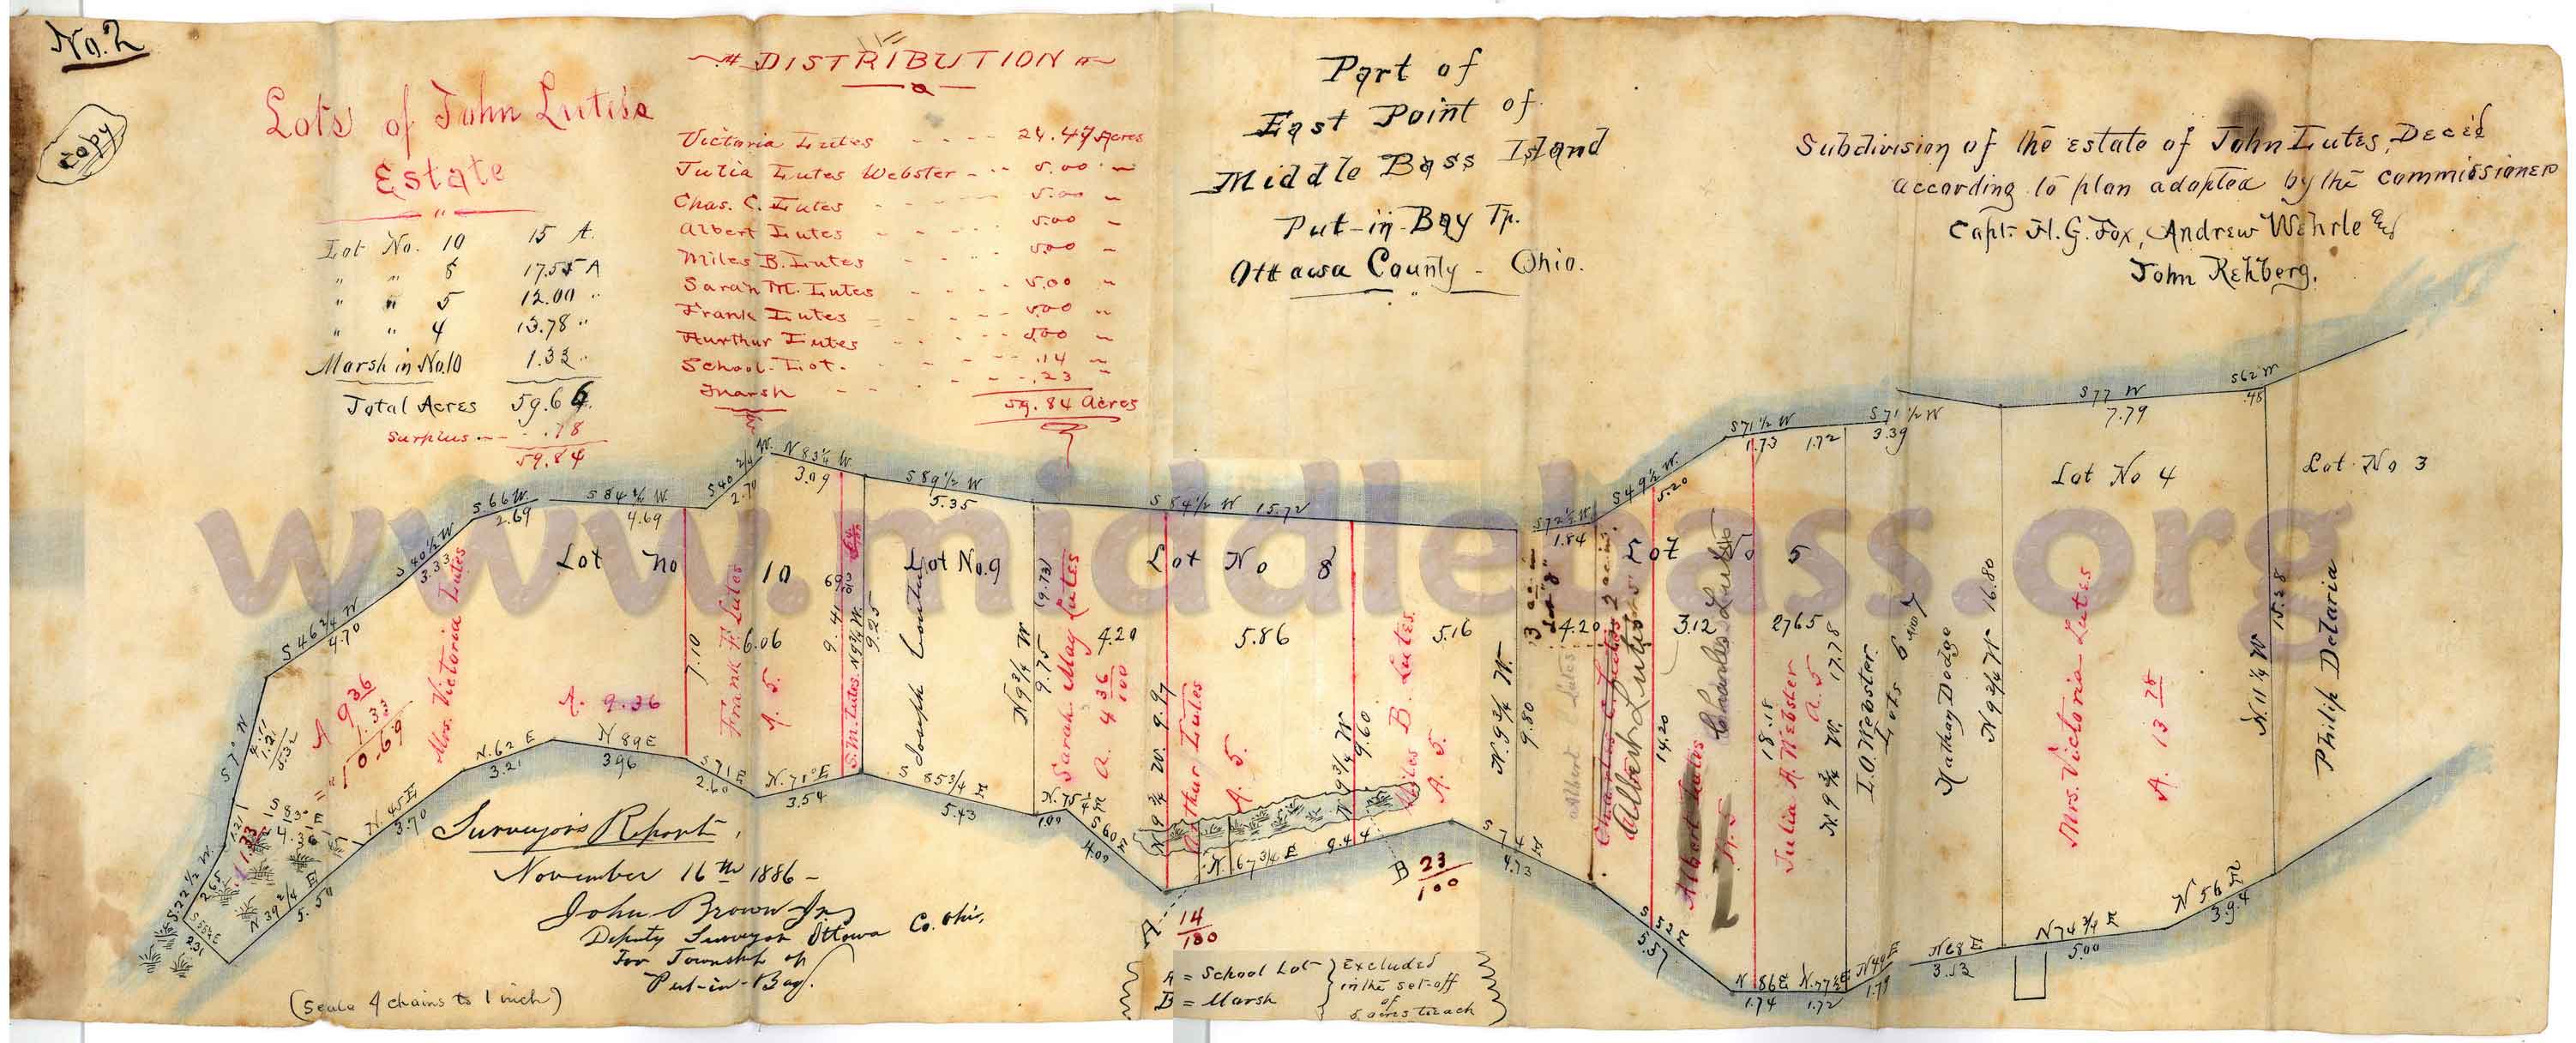 No. 2
copy
Lots of John Lutes's
Estate
Lot No. 10 15 A.
" " 8 17.55 A
" " 5 12.00 "
" " 4 13.78 "
Marsh in No. 10 1.33 "
Total Acres 59.66
Surplus .18
59.84
DISTRIBUTION
Victoria Lutes - - - - 24.47 Acres
Julia Lutes Webster - - - 5.00 "
Chas. C. Lutes - - - - 5.00 "
Albert Lutes - - - - 5.00 "
Miles B. Lutes - - - - 5.00 "
Sarah M. Lutes - - - - 5.00 "
Frank Lutes - - - - 5.00 "
Aurthur Lutes - - - - 5.00 "
School-Lot. - - - - .14 "
Marsh - - - - .23 "
59.84 Acres
Part of
East Point of
Middle Bass Island
Put-in-Bay Tp.
Ottawa County - Ohio.
Subdivision of the estate of John Lutes, Dec'd
according to plan adopted by the commissioners
Capt. H. G. Fox, Andrew Wehrle &
John Rehberg.
S 7° W
4.11
1.21
5.32
S 46 3/4 W
4.70
S 40 1/2 W
3.33
S. 66 W.
2.69
S 84 1/2 W.
4.69
S 40 3/4 W.
2.70
N 83 1/4 W
3.09
S 89 1/2 W
5.35
S 84 1/2 W 15.72
S 72 1/2 W
1.84
S 49 1/2 W.
5.20
S 71 1/2 W
1.73 1.72
S 71 1/2 W
3.39
S 77 W
7.79
S 62 W
.45
Lot No 10
Lot No. 9
Lot No 8
Lot No 5
Lot No 4
Lot No 3
Mrs. Victoria Lutes
A 9 36
1.33
10.69
A. 9.36
7.10
Frank F. Lutes
A. 5.
6.06
9.41
S. M. Lutes. N 9 3/4 W.
9.25
Joseph
N 9 3/4 W
9.75 (9.73)
Sarah May Lutes
A. 4 36/100
4.20
N 9 3/4 W. 9.97
Arthur Lutes
A. 5.
5.86
N 9 3/4 W
9.60
Miles B. Lutes.
A. 5.
5.16
N. 9 3/4 W.
9.80
4.20
Albert Lutes
Charles C. Lutes
Albert Lutes
14.20
3.12
Charles Lutes
Albert Lutes
A. 5
2765
18.18
Julia A. Webster
A. 5
N. 9 3/4 W. 17.78
I. O. Webster.
Lots 6 and 7
Nathan Dodge
N 9 3/4 W 16.80
Mrs. Victoria Lutes
A. 13 78
N. 11 1/4 W
15.28
Philip Delaria
1.21
S 83° E
4.36
1.33
S. 22 1/2 W.
2.65
2.31
N 39 3/4 E
5.50
N. 45 E
3.70
N. 62 E
3.21
N 89 E
3.96
S 71 E
2.60
N. 71° E
3.54
S 85 3/4 E
5.43
1.00
S 60 E
4.00
N. 67 3/4 E 9.44
S 74 E
4.73
S 52 E
5.57
N 86 E
1.74
N. 77 1/2 E
1.72
N 49 E
1.79
N 68 E
3.53
N 74 3/4 E
5.00
N 56 E
3.94
A 14/100
B 23/100
Surveyor's Report.
November 16th 1886 -
John Brown Jr
Deputy Surveyor Ottowa Co. Ohio.
For Township of
Put-in-Bay.
(Scale 4 chains to 1 inch)
A = School Lot } Excluded
B = Marsh in the set-off
of
5 acres to each
www.middlebass.org